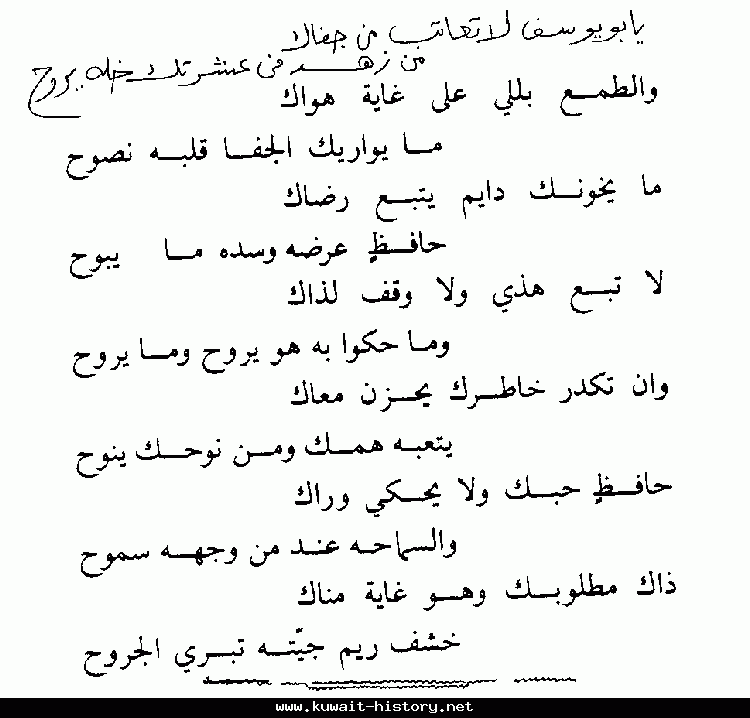 يابويوسف لا تعاتب من جفاك
من زهد في عشرتك خله يروح
والطمع بللي على غاية هواك
ما يواريك الجفا قلبه نصوح
ما يخونك دايم يتبع رضاك
حافظٍ عرضه وسده ما يبوح
لا تبع هذي ولا وقف لذاك
وما حكوا به هو يروح وما يروح
وان تكدر خاطرك يحزن معاك
يتعبه همك ومن نوحك ينوح
حافظٍ حبك ولا يحكي وراك
والسماحه عند من وجهه سموح
ذاك مطلوبك وهو غاية مناك
خشف ريم جيّته تبري الجروح
www.kuwait-history.net